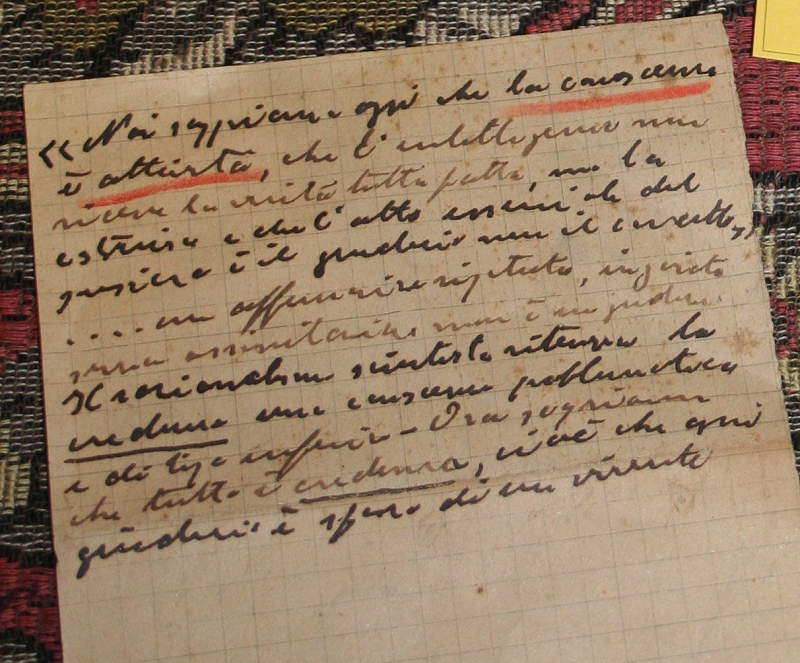 « Noi sappiamo oggi che la conoscenza
è attività, che l'intelligenza non
riceve la verità tutta fatta, ma la
costruisce e che l'atto essenziale del
pensiero è il giudizio non il concetto,
.... una affermazione ripetuta, ingerita
senza assimilazione non è un giudizio.
Il razionalismo scientista riteneva la
credenza una conoscenza problematica
e di tipo inferiore - Ora sappiamo
che tutto è credenza, cioè che ogni
giudizio è sforzo di un vivente